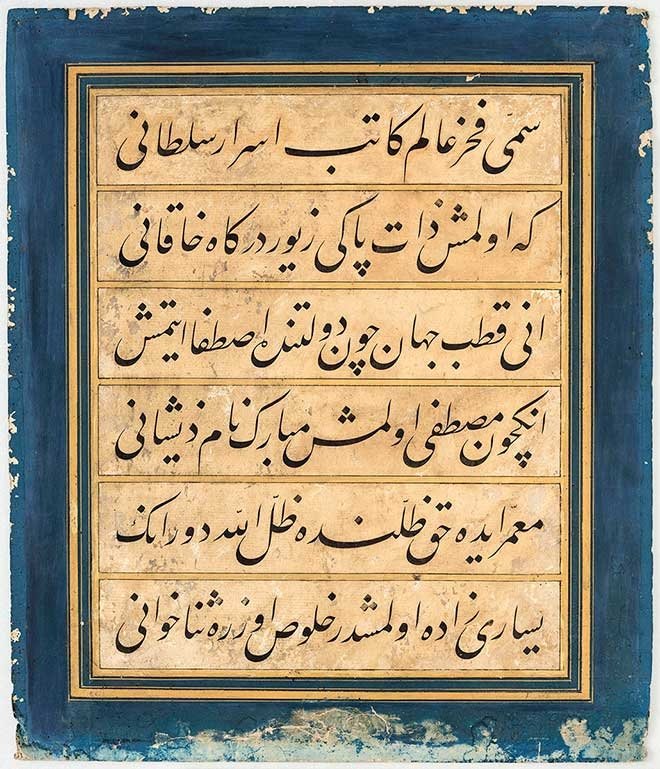 سمّی فخر عالم کاتب اسرار سلطانی
که اولمش ذات پاکی زیور درکاه خاقانی
انی قطب جهان چون دولتنده اصطفا ایتمش
انکچون مصطفی اولمش مبارک نام ذیشانی
معمّر ایده حق ظلّنده ظلّ الله دورانک
یساری زاده اولمشدر خلوص اوزره ثنا خوانی